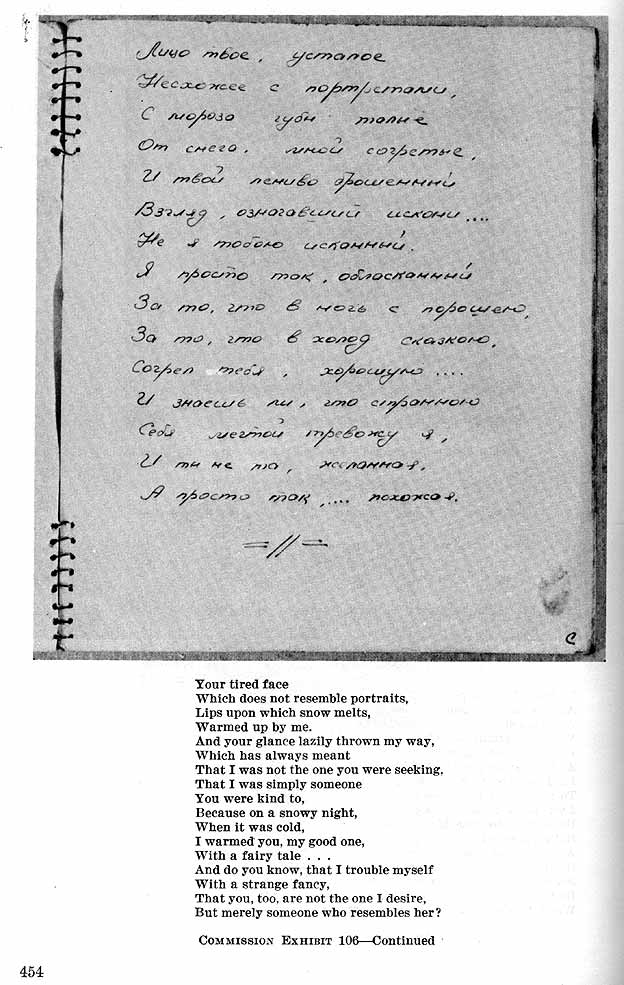 Лицо твое, усталое
Несхожее с портретами,
С мороза губы талые
От снега, мной согретые,
И твой лениво брошенный
Взгляд, означавший искони....
Не я тобою исканный.
Я просто так, обласканный
За то, что в ночь с порошею,
За то, что в холод сказкою,
Согрел тебя, хорошую....
И знаешь ли, что странною
Себя мечтой тревожу я,
И ты не та, желанная.
А просто так,.... похожая.
=//=
C
Your tired face
Which does not resemble portraits,
Lips upon which snow melts,
Warmed up by me.
And your glance lazily thrown my way,
Which has always meant
That I was not the one you were seeking,
That I was simply someone
You were kind to,
Because on a snowy night,
When it was cold,
I warmed you, my good one,
With a fairy tale . . .
And do you know, that I trouble myself
With a strange fancy,
That you, too, are not the one I desire,
But merely someone who resembles her?
COMMISSION EXHIBIT 106—Continued
454